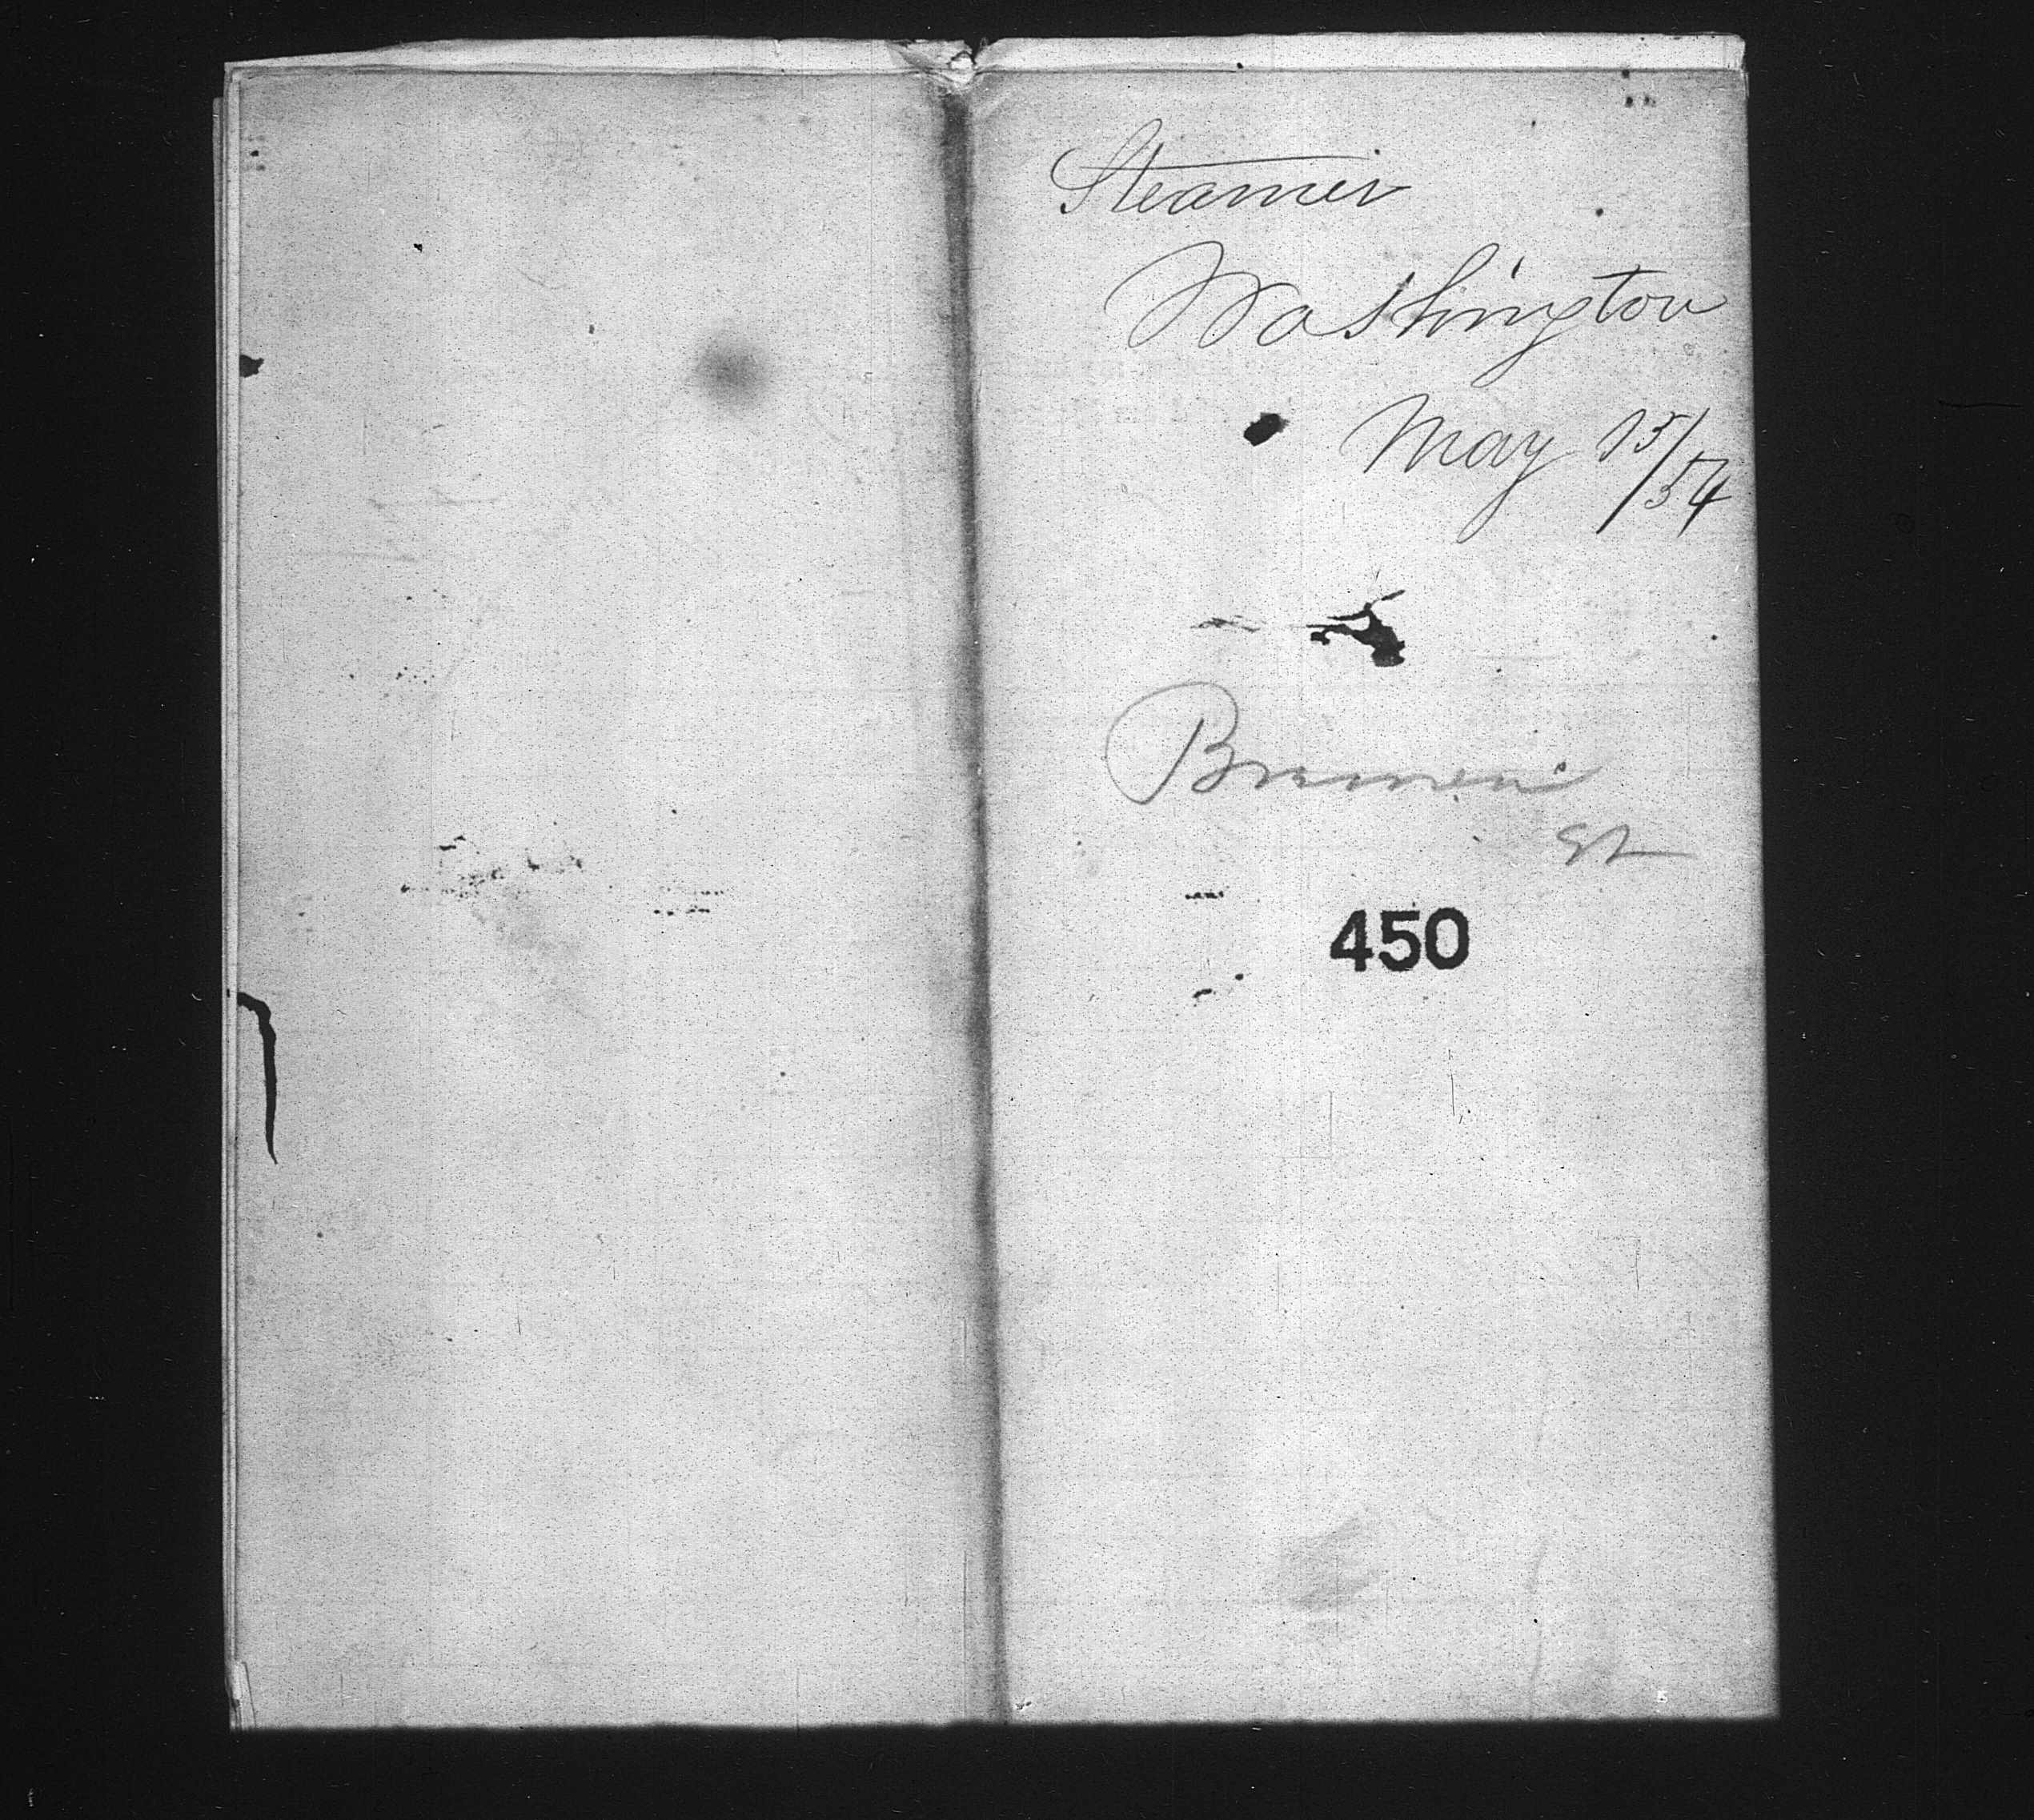 Steamer
Washington
May 15/54
Bremen
450